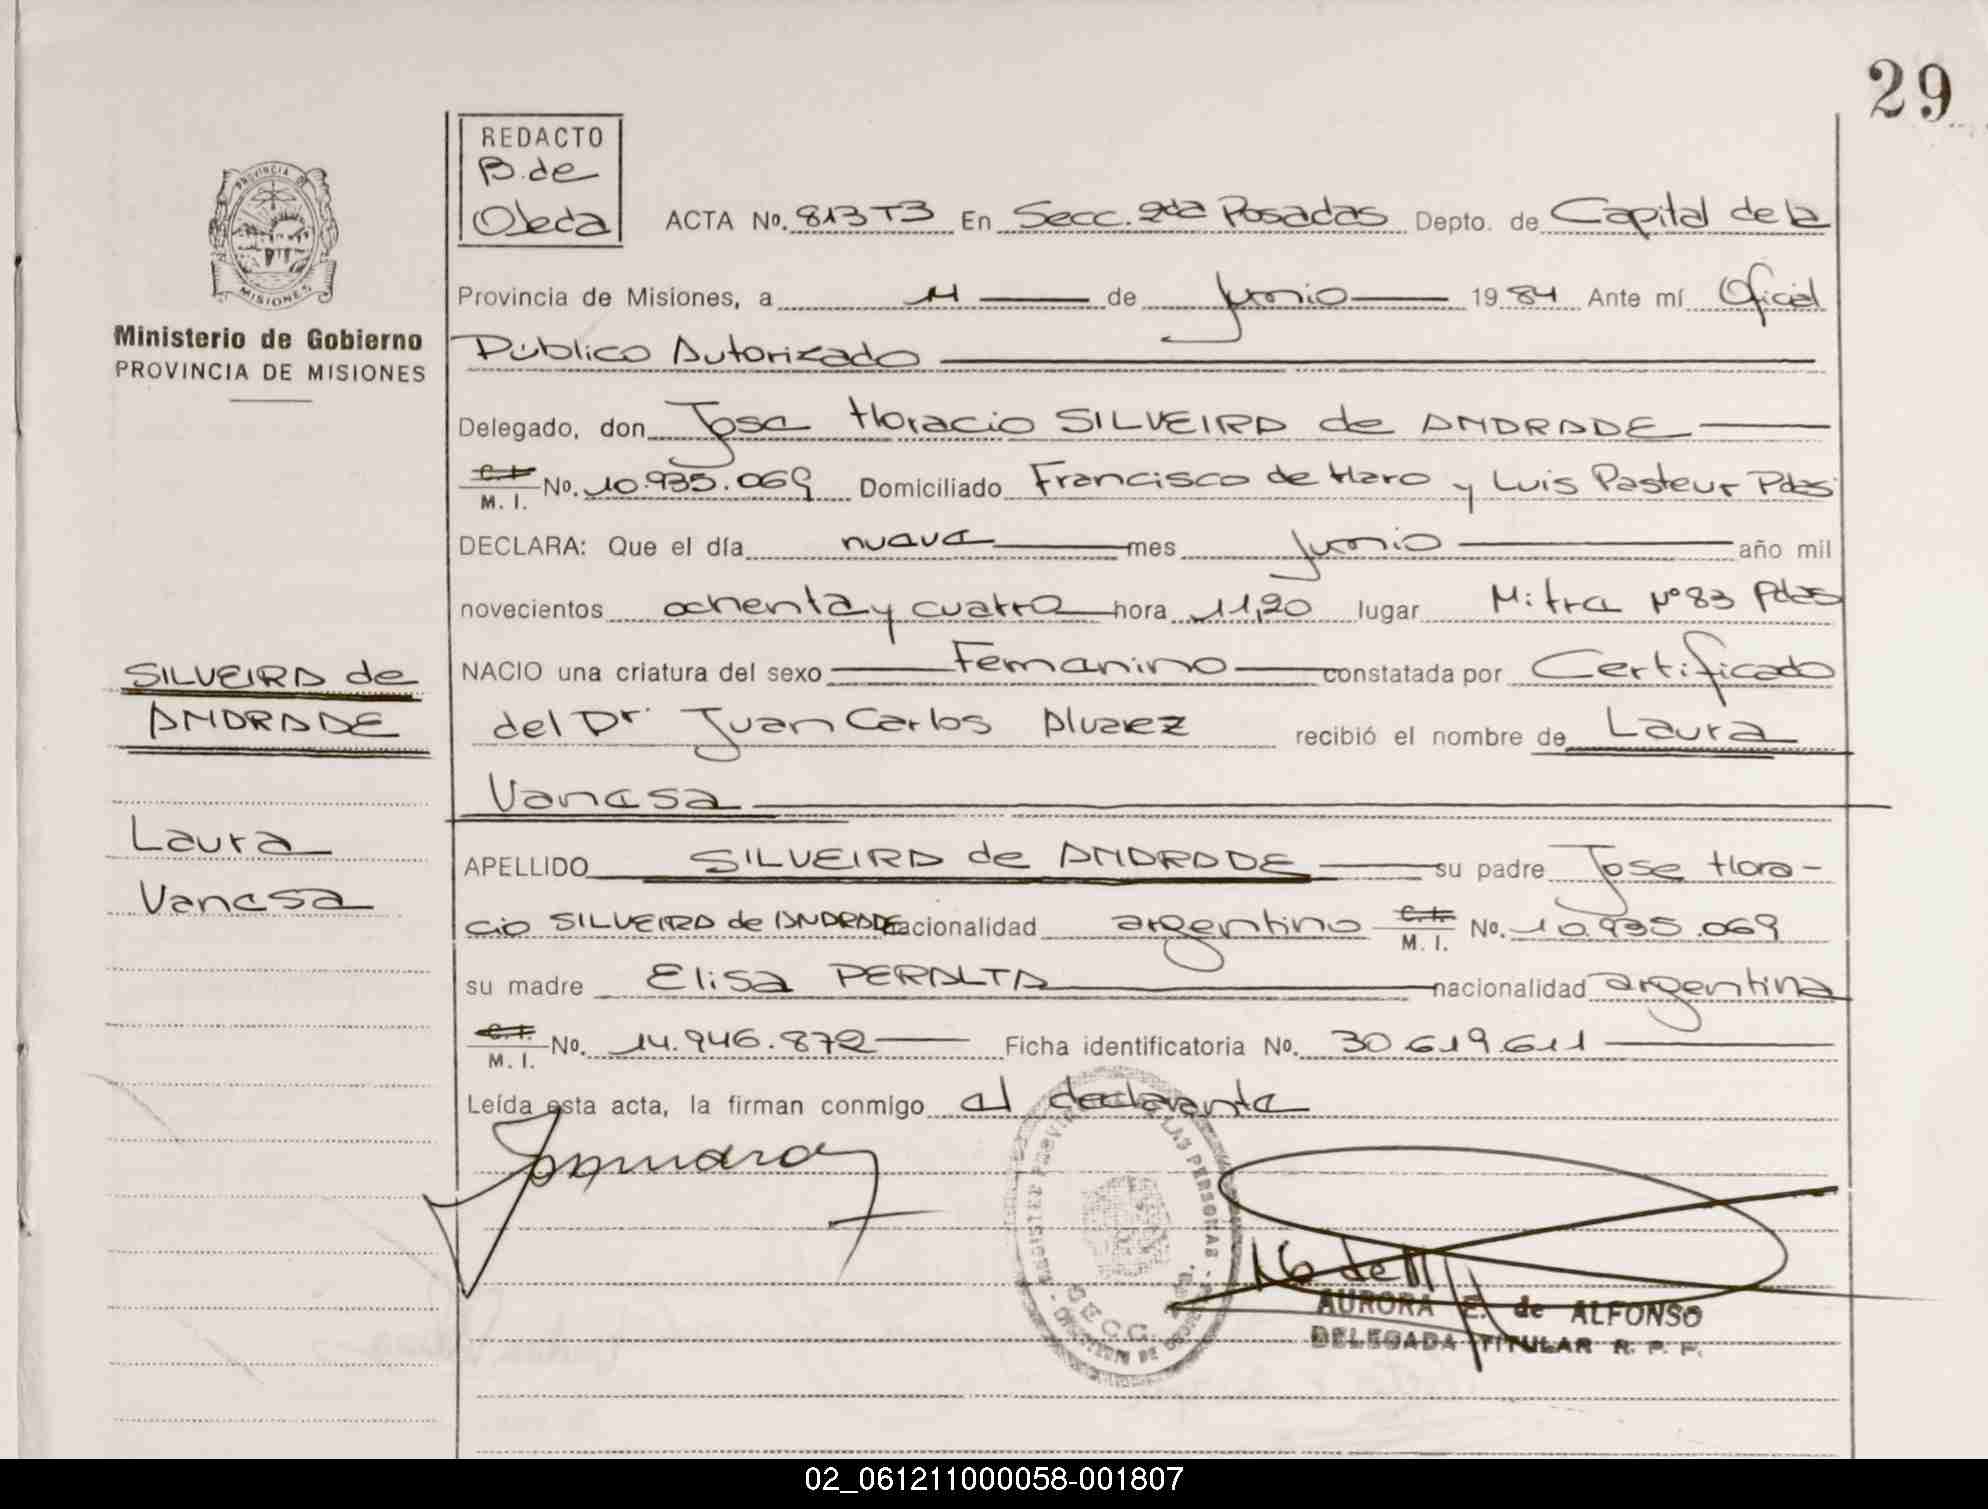 29
REDACTO
B. de
Ojeda
PROVINCIA DE
MISIONES
Ministerio de Gobierno
PROVINCIA DE MISIONES
ACTA No. 813 T3 En Secc. 2da Posadas Depto. de Capital de la
Provincia de Misiones, a 11 de Junio 1984 Ante mí Oficial
Público Autorizado
Delegado, don Jose Horacio SILVEIRA de ANDRADE
C.I. M. I. No. 10.935.069 Domiciliado Francisco de Haro y Luis Pasteur Pdas
DECLARA: Que el día nueve mes Junio año mil
novecientos ochenta y cuatro hora 11,20 lugar Mitre Nº 83 Pdas
NACIO una criatura del sexo Femenino constatada por Certificado
del Dr. Juan Carlos Alvarez recibió el nombre de Laura
Vanesa
SILVEIRA de
ANDRADE
Laura
Vanesa
APELLIDO SILVEIRA de ANDRADE su padre Jose Hora-
cio SILVEIRA de ANDRADE nacionalidad argentino C.I. M. I. No. 10.935.069
su madre Elisa PERALTA nacionalidad argentina
C.I. M. I. No. 14.946.872 Ficha identificatoria No. 30.619.611
Leída esta acta, la firman conmigo el declarante
LAS PERSONAS
SECC. 2da.
AURORA E. de ALFONSO
DELEGADA TITULAR R. P. P.
02_061211000058-001807